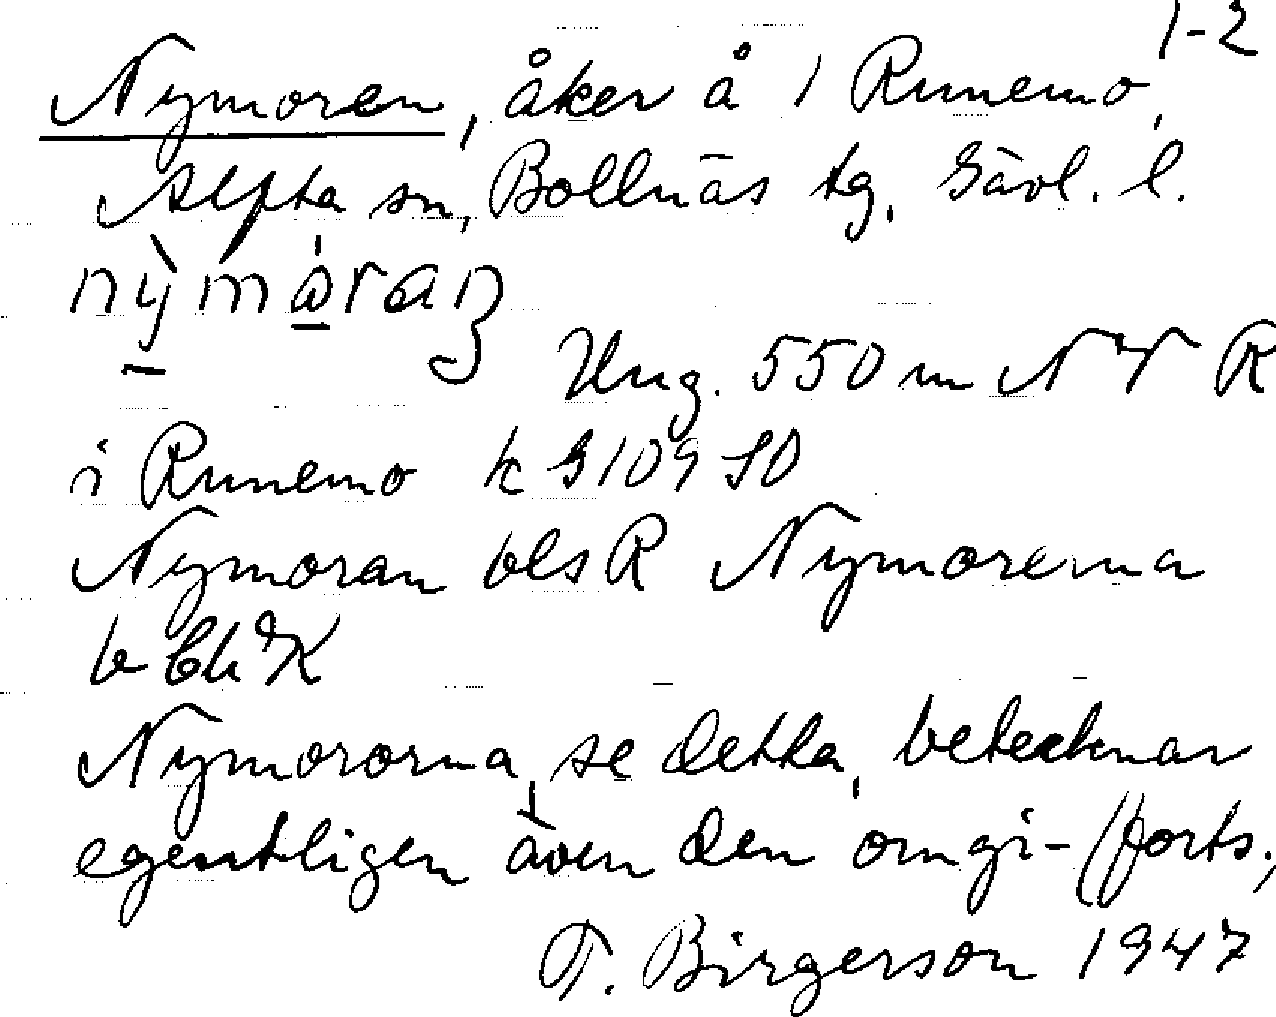 1-2
Nymoren, åker å 1 Runemo,
Alfta sn, Bollnäs tg, Gävl. l.
nỳmåran
Ung. 550 m NV R
i Runemo k G109 SO
Nymoran bls R Nymorerna
b
Nymororna, se detta, betecknar
egentligen även den omgi- (forts.)
T. Birgerson 1947